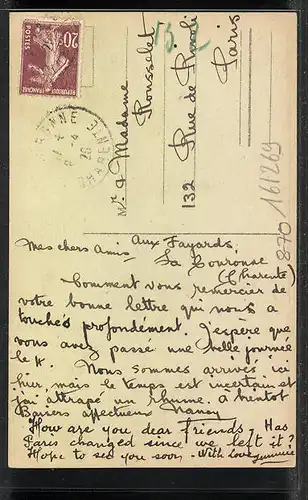 20c
POSTES
REPUBLIQUE FRANÇAISE
132
Mr & Madame
Rousselet
132 Rue de Rivoli
Paris
870 161269
Aux Fayards,
La Couronne
(Charente)
Mes chers Amis
Comment vous remercier de
votre bonne lettre qui nous a
touchés profondément. J'espère que
vous avez passé une belle journée
le 4. Nous sommes arrivés ici
hier, mais le temps est incertain et
j'ai attrapé un rhume. à bientôt
Baisers affectueux Nancy
How are you dear Friends, Has
Paris changed since we left it?
Hope to see you soon - With Love